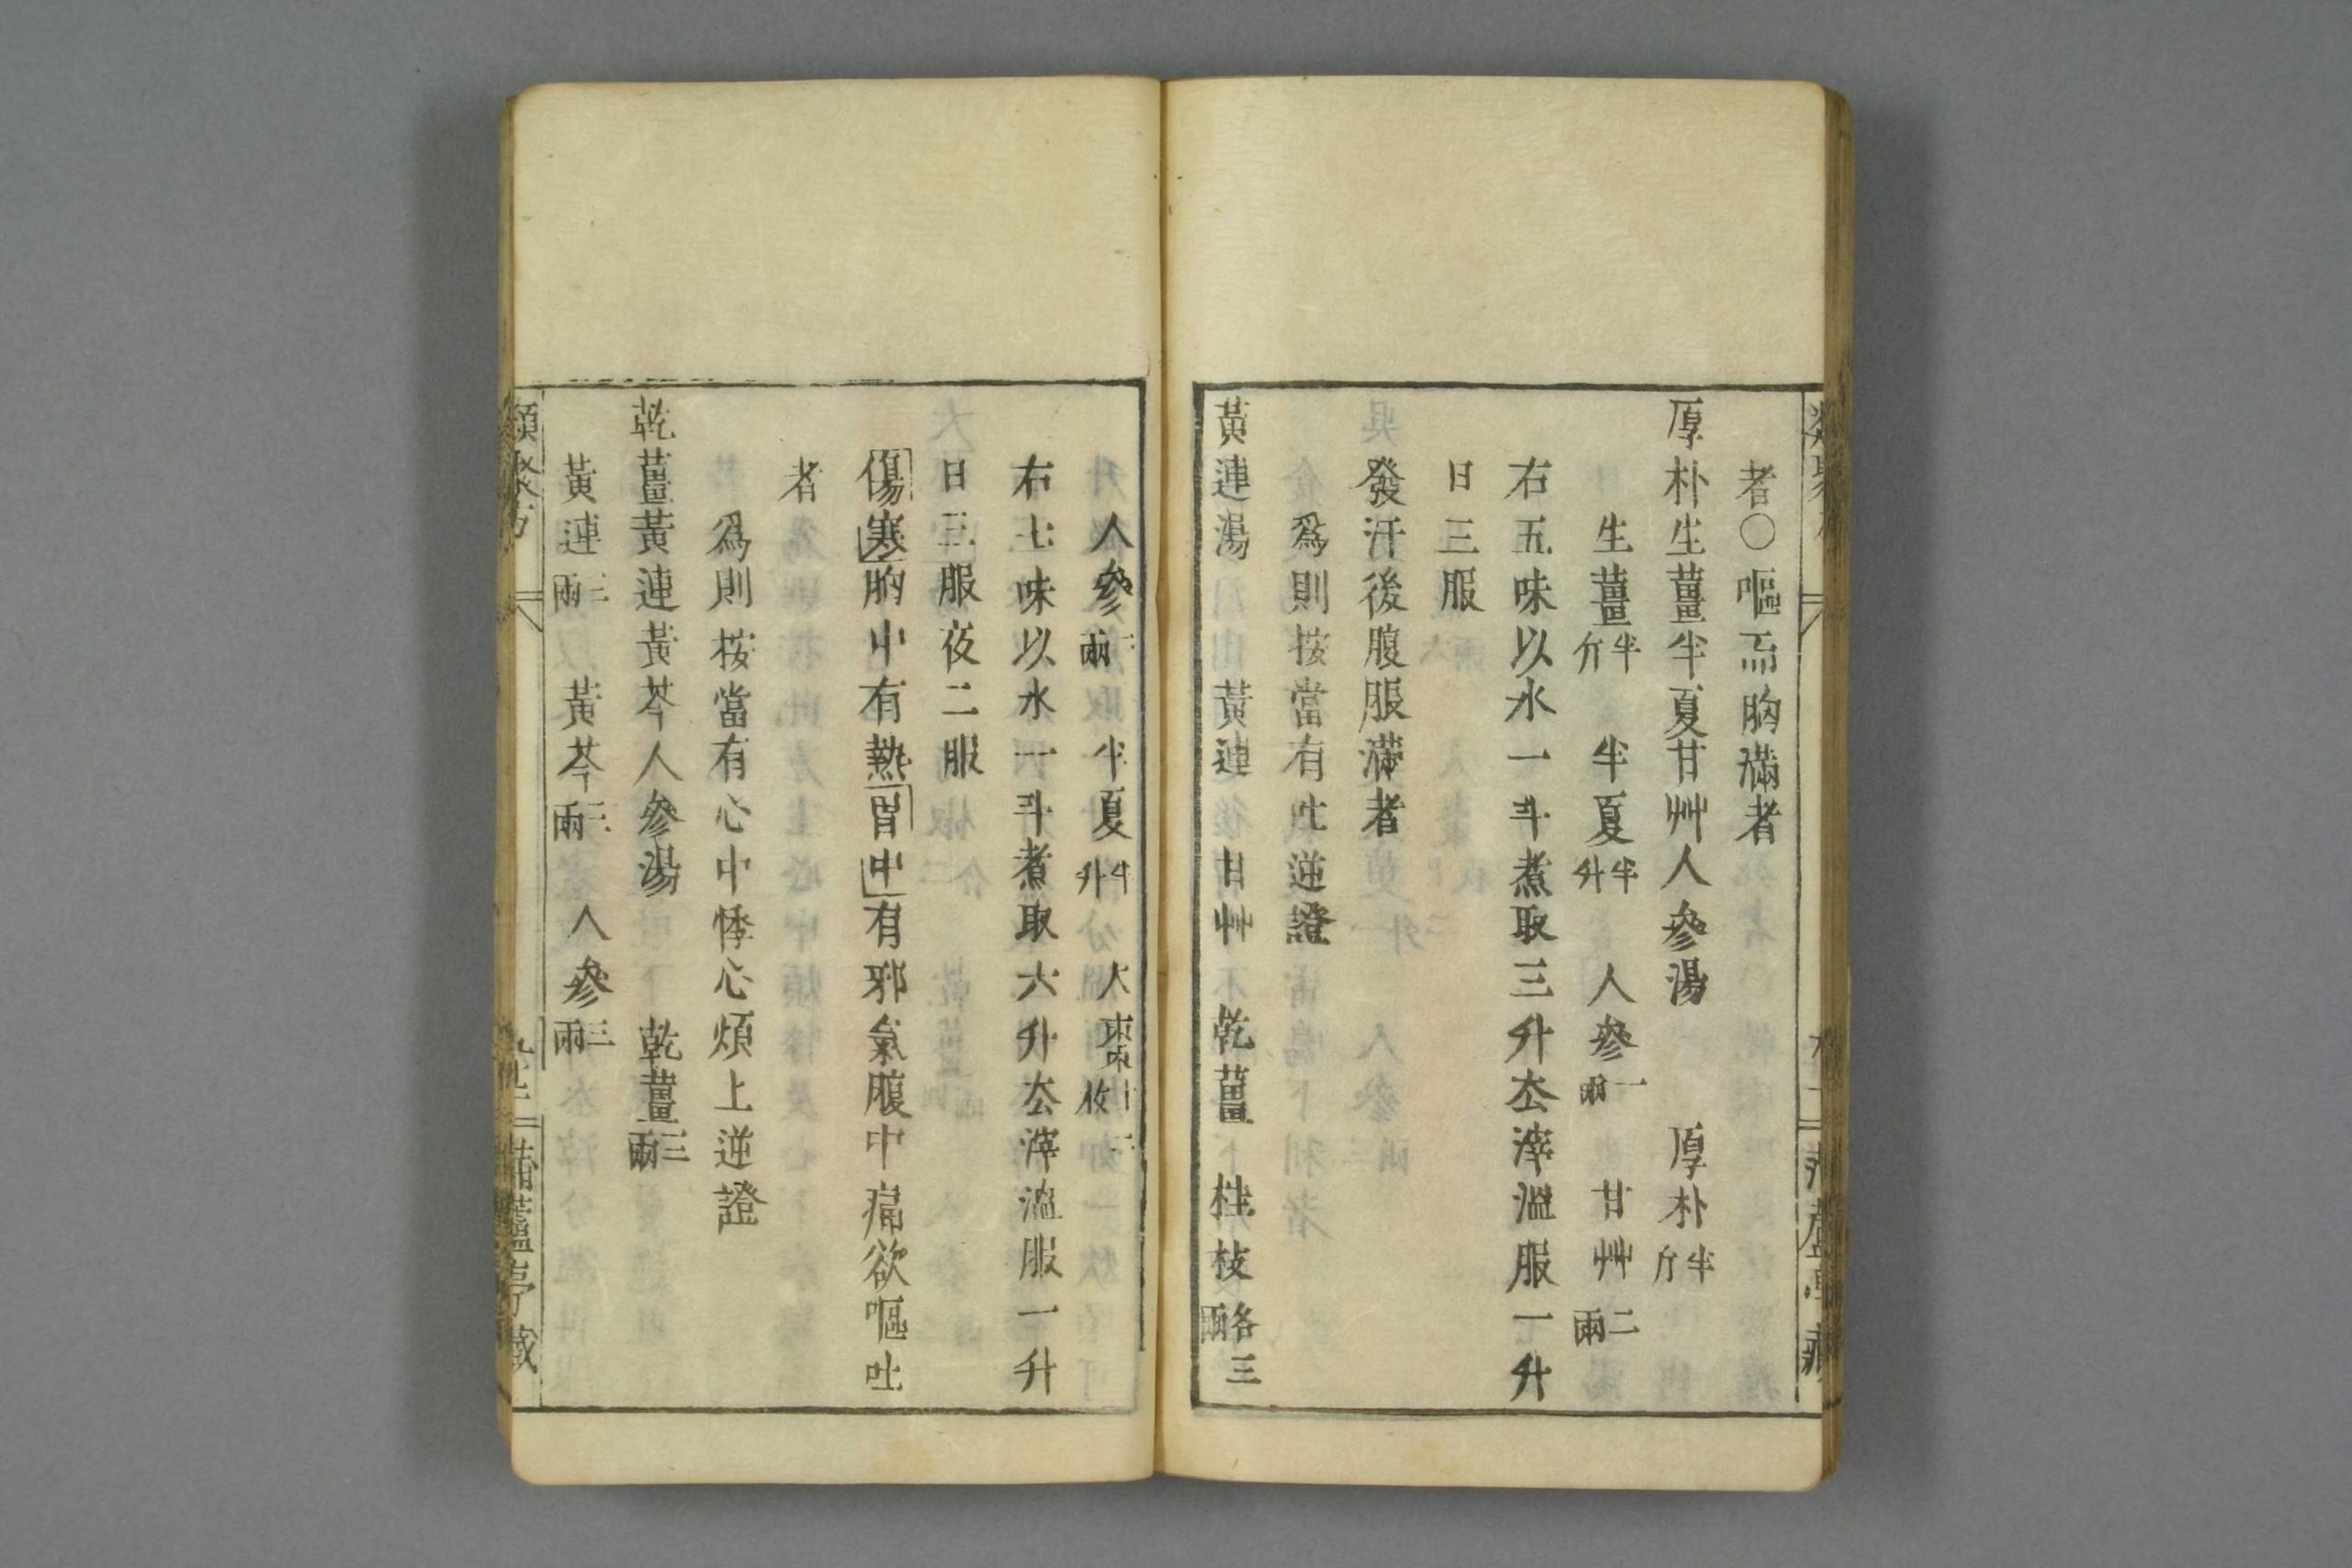 者○嘔而胸滿者
厚朴生薑半夏甘艸人參湯 厚朴半斤
生薑半斤 半夏半升 人參一兩 甘艸二兩
右五味以水一斗煮取三升去滓溫服一升
日三服
發汗後腹脹滿者
爲則按當有吐逆證
黃連湯 黃連 甘艸 乾薑 桂枝各三兩
人參二兩 半夏半升 大棗十二枚
右七味以水一斗煮取六升去滓溫服一升
日三服夜二服
傷寒胸中有熱胃中有邪氣腹中痛欲嘔吐
者
爲則按當有心中悸心煩上逆證
乾薑黃連黃芩人參湯 乾薑三兩
黃連三兩 黃芩三兩 人參三兩
類聚方
蒲蘆亭藏